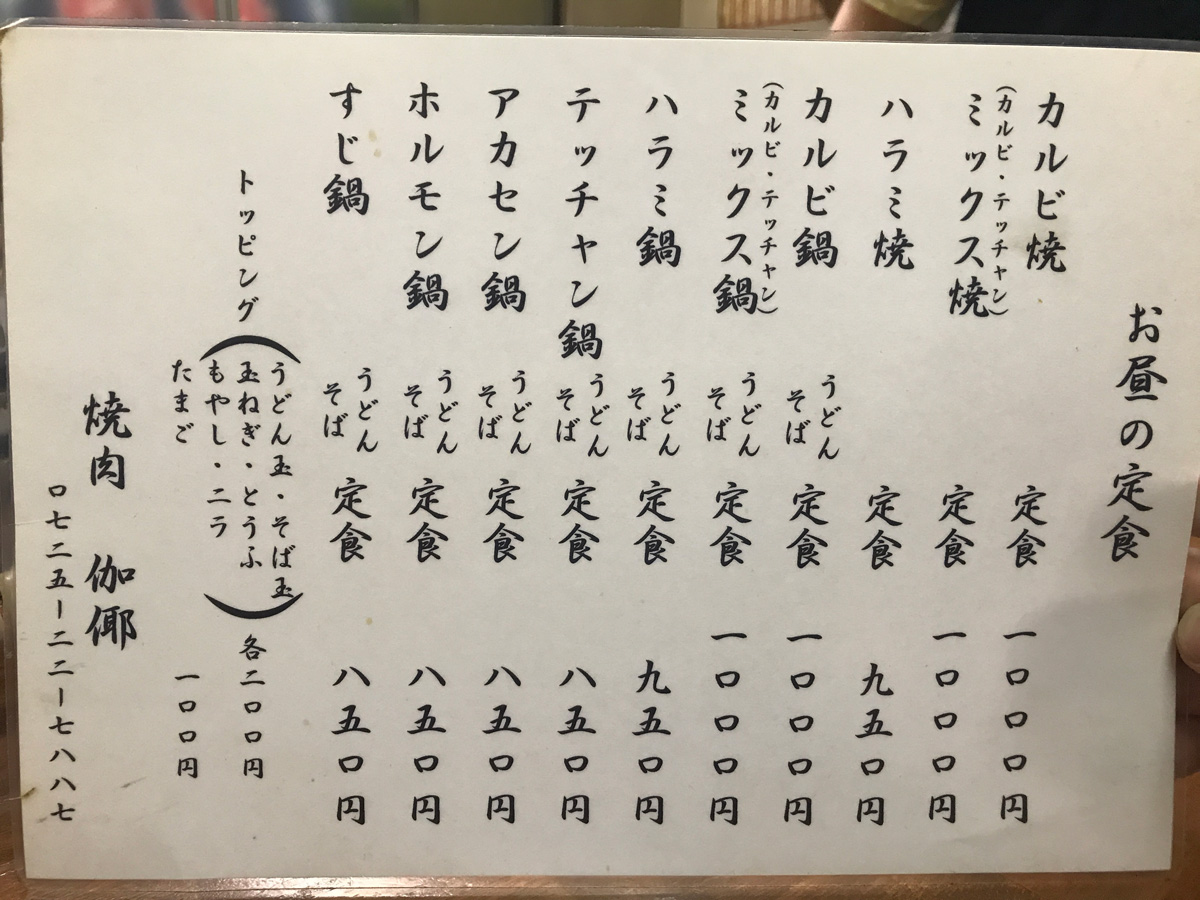 お昼の定食
カルビ焼 定食 一〇〇〇円
ミックス焼 定食 一〇〇〇円
(カルビ・テッチャン)
ハラミ焼 定食 九五〇円
カルビ鍋 うどん そば 定食 一〇〇〇円
ミックス鍋 うどん そば 定食 一〇〇〇円
(カルビ・テッチャン)
ハラミ鍋 うどん そば 定食 九五〇円
テッチャン鍋 うどん そば 定食 八五〇円
アカセン鍋 うどん そば 定食 八五〇円
ホルモン鍋 うどん そば 定食 八五〇円
すじ鍋 うどん そば 定食 八五〇円
トッピング
(うどん玉・そば玉
玉ねぎ・とうふ
もやし・ニラ) 各二〇〇円
たまご 一〇〇円
焼肉 伽倻
〇七二五ー二二ー七八八七